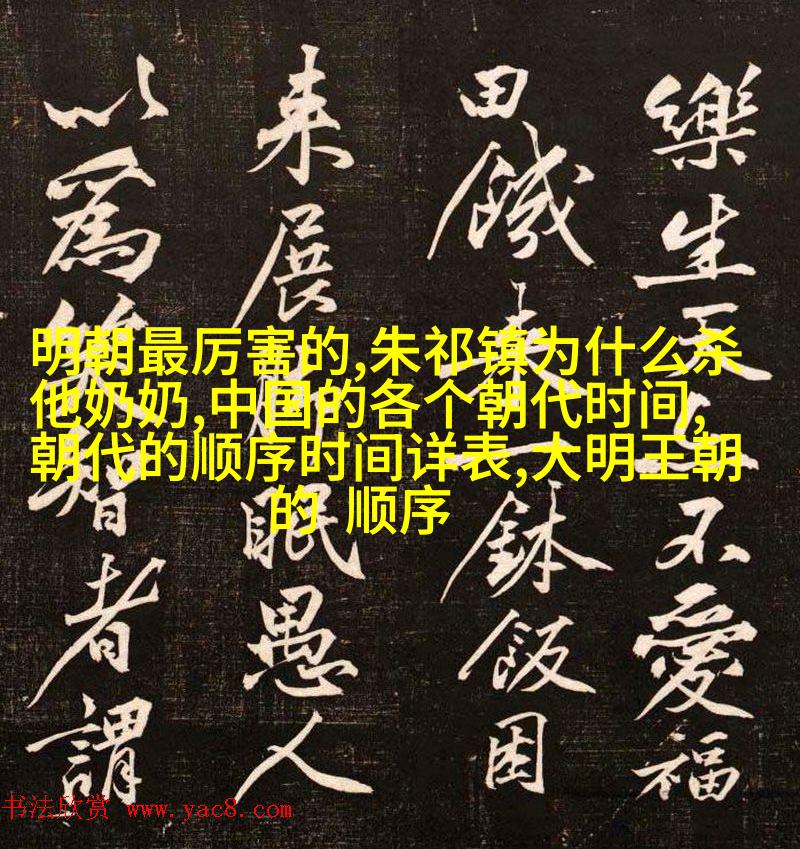 樂生天不愛福
田饑來一鉢飯困
来展脚眠愚人
以為笑智者謂
明朝最厉害的,朱祁镇为什么杀
他奶奶,中国的各个朝代时间,
朝代的顺序时间详表,大明王朝
的 顺序
书法欣赏 www.yac8.com